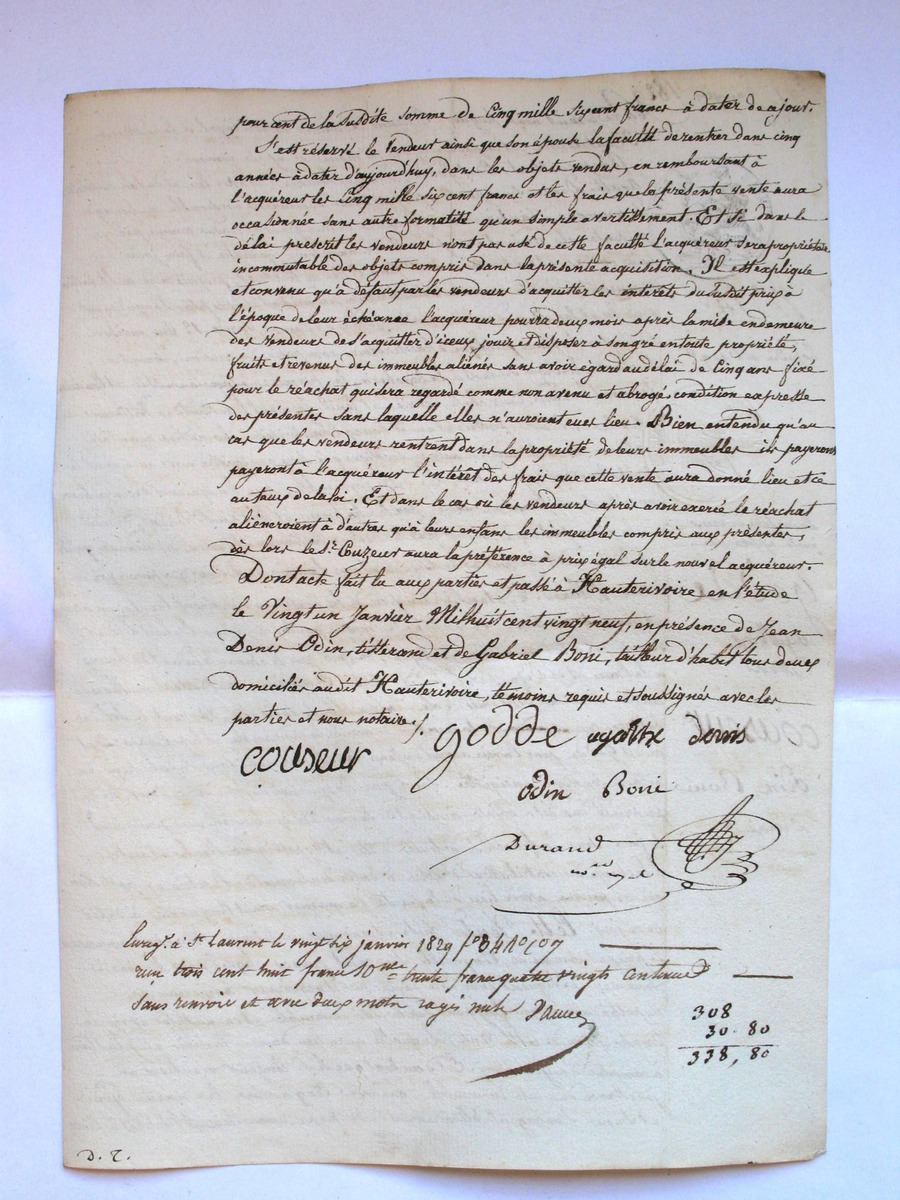 pour cent de la susdite somme de Cinq mille six cent francs à dater de ce jour.
S'est réservé le vendeur ainsi que son épouse la faculté de rentrer dans cinq
années à dater d'aujourd'huy, dans les objets vendus, en remboursant à
l'acquéreur les Cinq mille six cent francs et les frais que la présente vente aura
occasionnée sans autre formalité qu'un simple avertissement. Et si dans le
délai prescrit les vendeurs n'ont pas usé de cette faculté l'acquéreur sera propriétaire
incommutable des objets compris dans la présente acquisition. Il est expliqué
et convenu qu'à défaut par les vendeurs d'acquitter les intérêts du susdit prix à
l'époque de leur échéance l'acquéreur pourra deux mois après la mise en demeure
des vendeurs de s'acquitter d'iceux jouir et disposer à son gré en toute propriété,
fruits et revenus des immeubles aliénés sans avoir égard au délai de Cinq ans fixé
pour le réachat qui sera regardé comme non avenu et abrogé, condition expresse
des présentes sans laquelle elles n'auroient eues lieu. Bien entendu qu'au
cas que les vendeurs rentrent dans la propriété de leurs immeubles ils payeront
payeront à l'acquéreur l'intérêt des frais que cette vente aura donné lieu et ce
au taux de la loi. Et dans le cas où les vendeurs après avoir exercé le réachat
aliéneroient à d'autres qu'à leurs enfans les immeubles compris aux présentes,
dès lors le Sr. Couzeur aura la préférence à prix égal sur le nouvel acquéreur.
Dont acte fait lu aux parties et passé à Hauterivoire en l'étude
le Vingt un Janvier Mil huit cent vingt neuf, en présence de Jean
Denis Odin, tisserand et de Gabriel Boni, tailleur d'habit tous deux
domiciliés audit Hauterivoire, témoins requis et soussignés avec les
parties et nous notaire./.
couseur godde agathe denis
odin Boni
Durand
nre ryal
Enregt. à St Laurent le vingt six janvier 1829 fo 34
reçu trois cent huit francs 10me trente francs quatre vingts centimes
sans renvoie et avec deux mots rayés nuls
308
30. 80
338, 80
D. T.